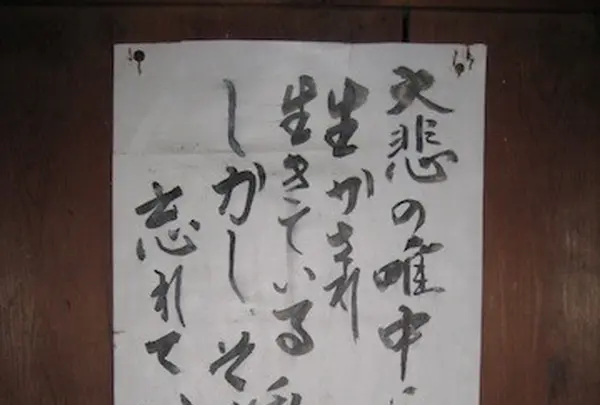 大悲の唯中
生かされ
生きている
しかし、そ
忘れて